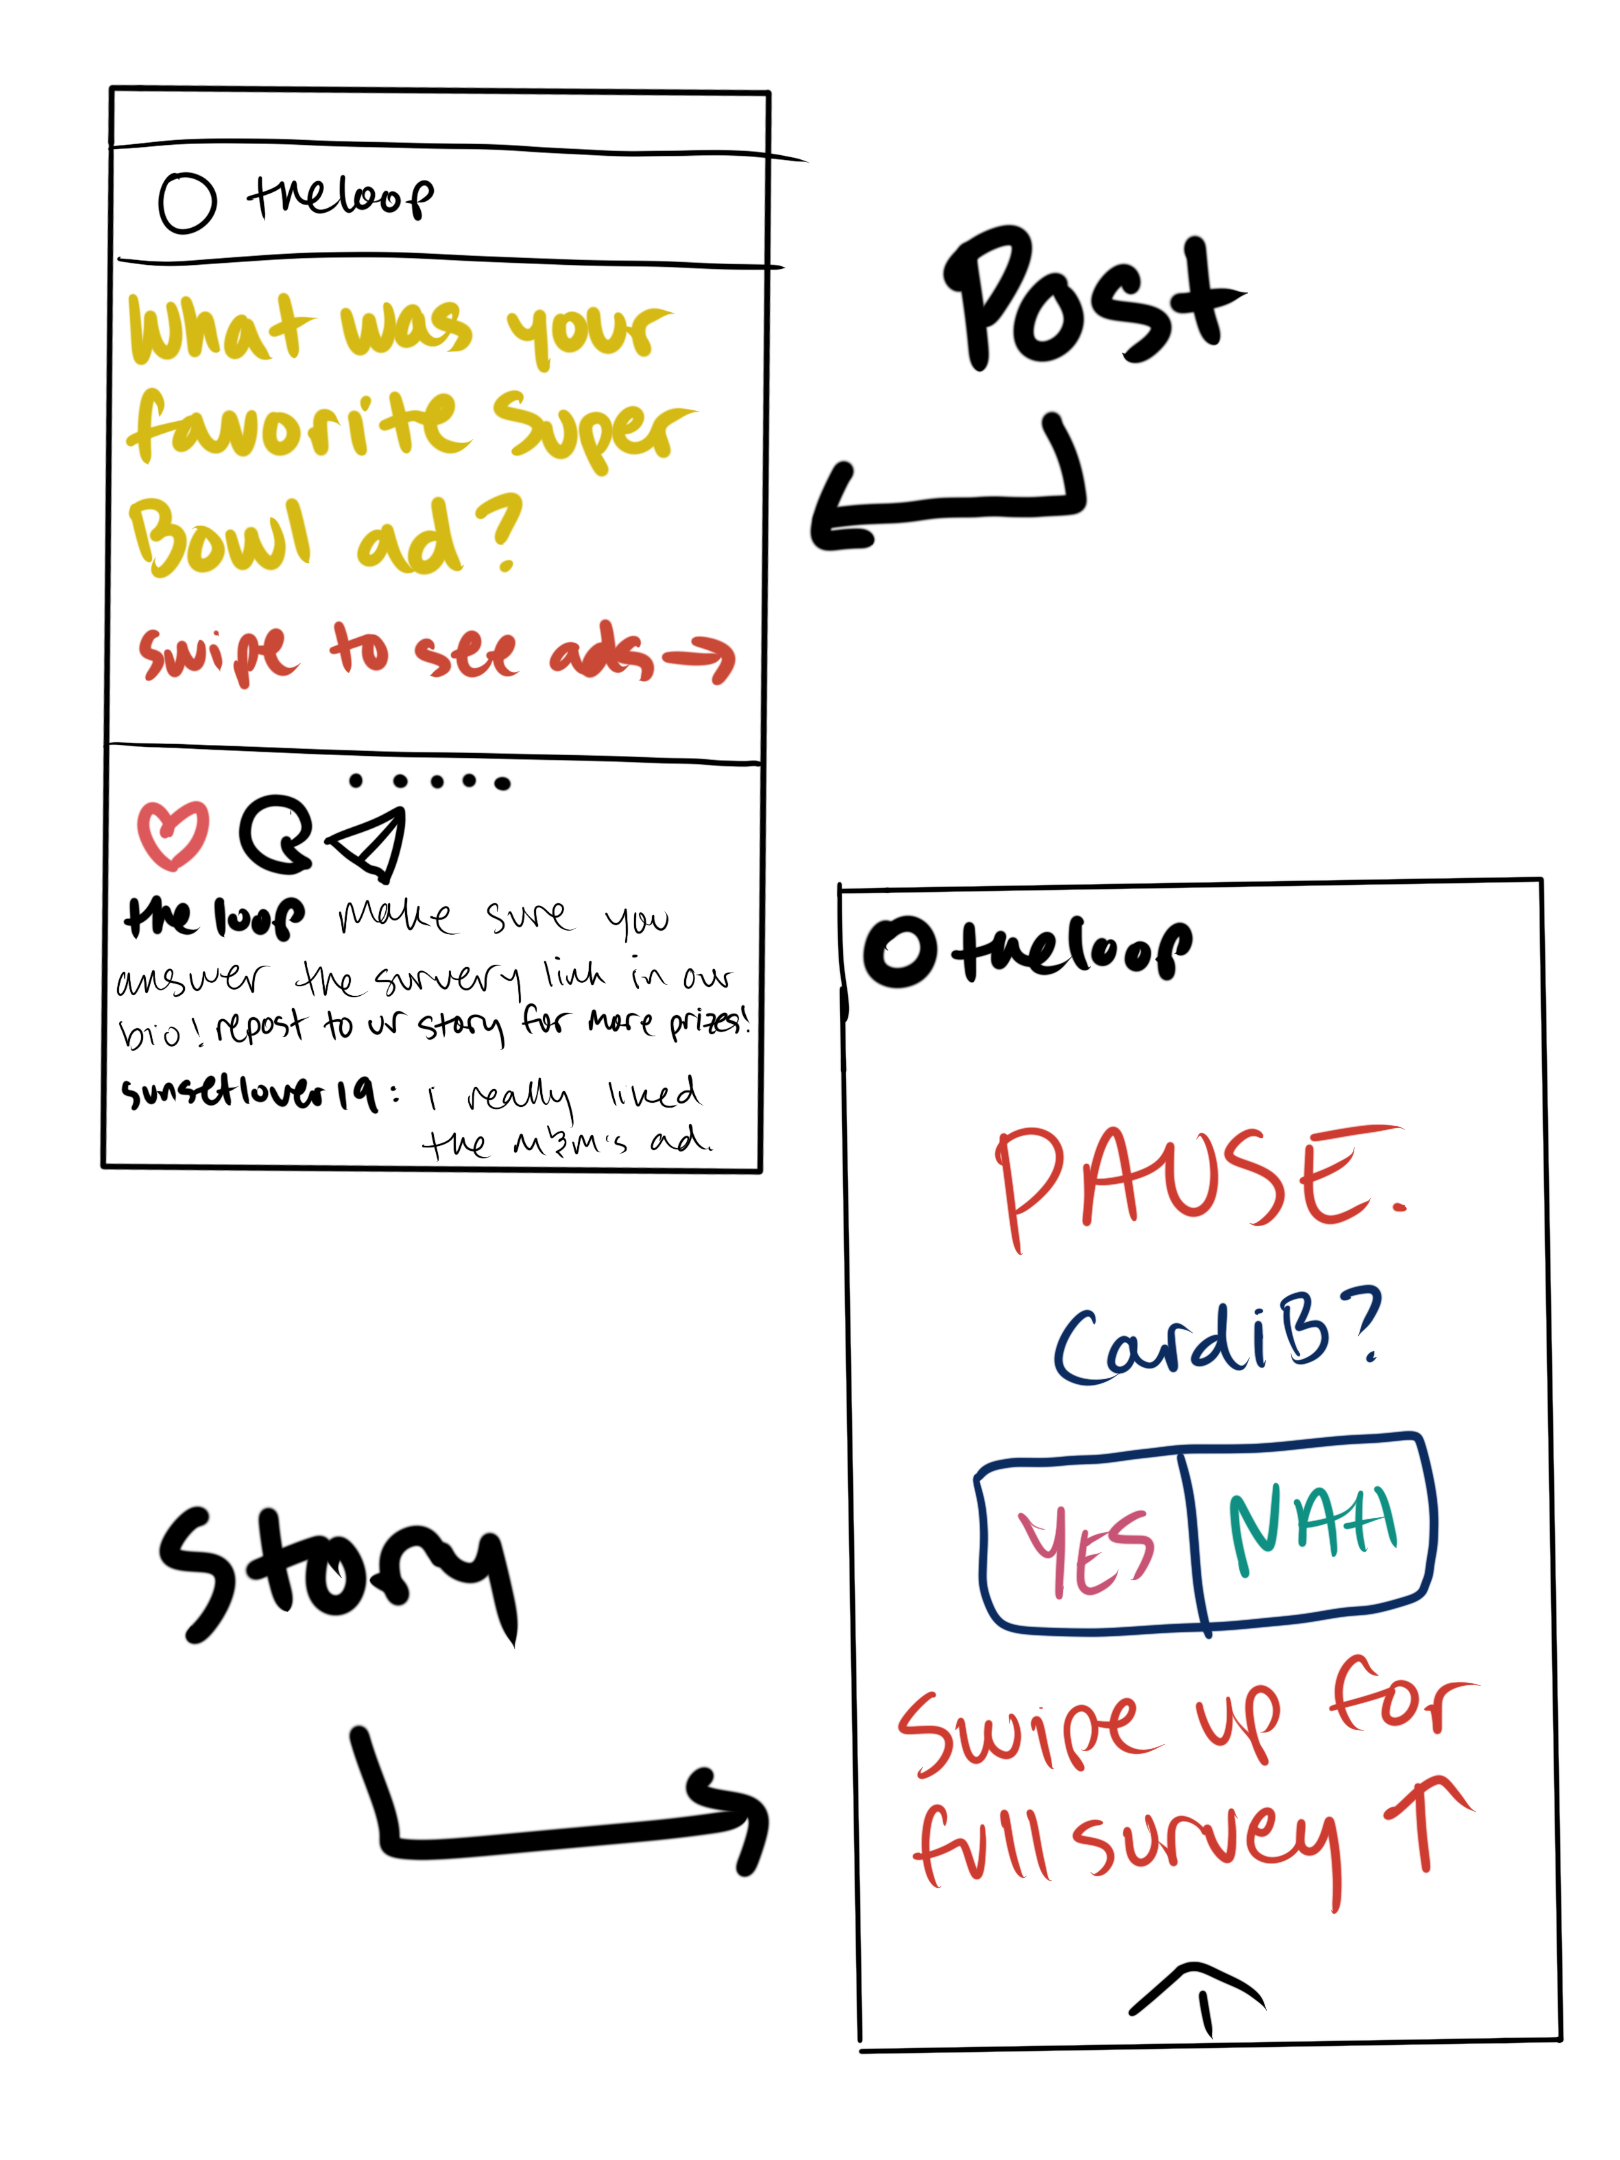 theloop
What was your
favorite Super
Bowl ad?
swipe to see ads→
the loop make sure you
answer the survery link in our
bio! repost to ur story for more prizes!
sunsetlover19: i really liked
the m&m's ad.
Post
theloop
PAUSE.
CardiB?
YES NAH
Swipe up for
full survey ↑
Story